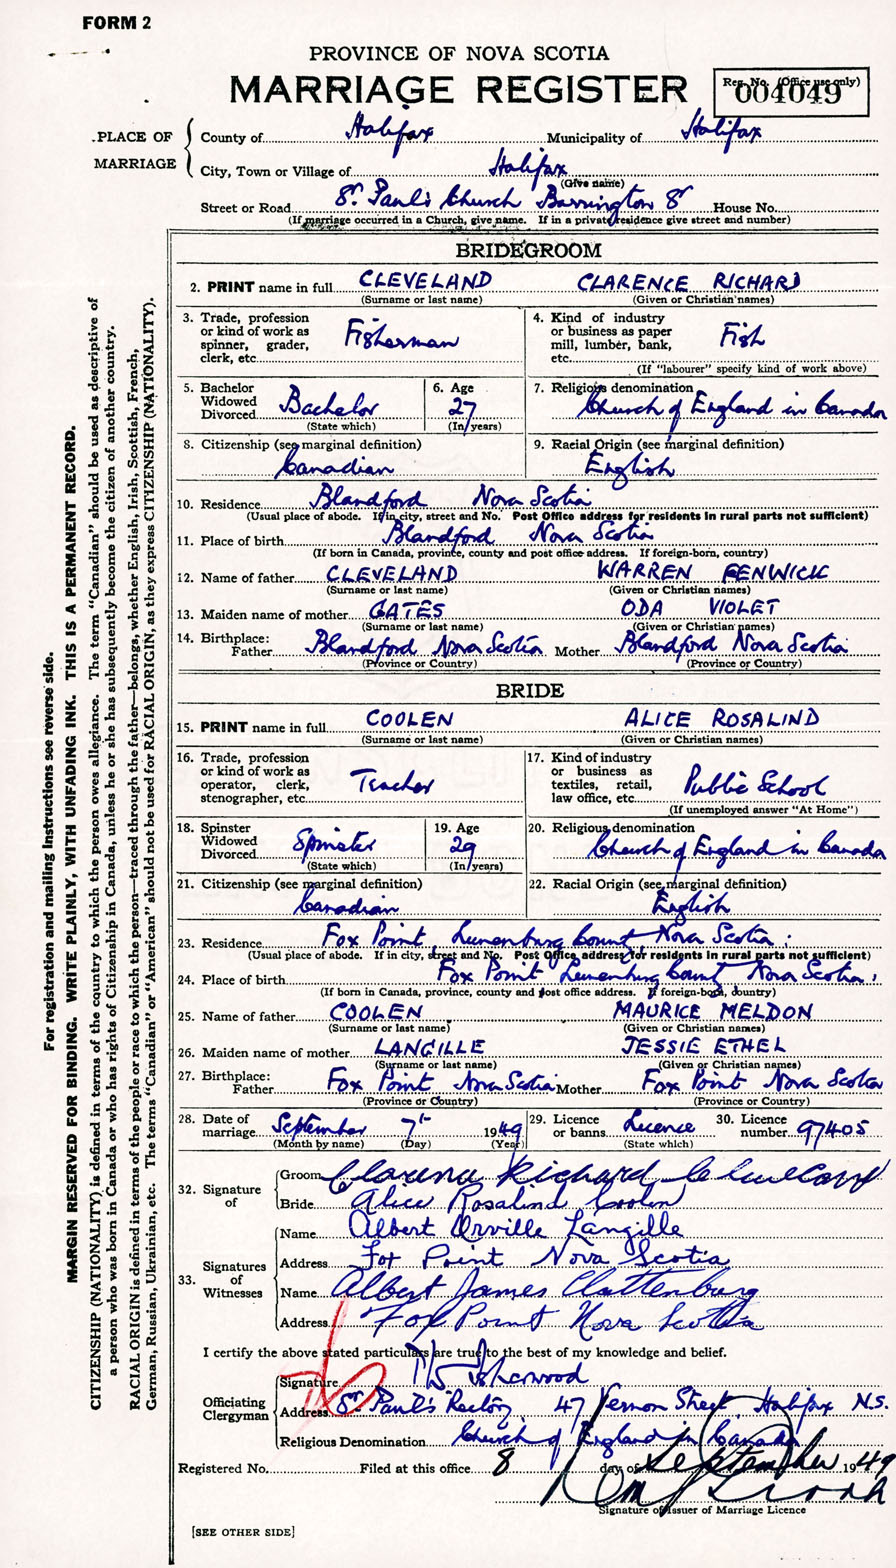 FORM 2
PROVINCE OF NOVA SCOTIA
MARRIAGE REGISTER
Reg. No. (Office use only)
004049
PLACE OF MARRIAGE
County of Halifax Municipality of Halifax
City, Town or Village of Halifax
(Give name)
Street or Road St. Paul's Church Barrington St House No.
(If marriage occurred in a Church, give name. If in a private residence give street and number)
BRIDEGROOM
2. PRINT name in full CLEVELAND CLARENCE RICHARD
(Surname or last name) (Given or Christian names)
3. Trade, profession or kind of work as spinner, grader, clerk, etc. Fisherman
4. Kind of industry or business as paper mill, lumber, bank, etc. Fish
(If "labourer" specify kind of work above)
5. Bachelor Widowed Divorced Bachelor
(State which)
6. Age 27
(In years)
7. Religious denomination
Church of England in Canada
8. Citizenship (see marginal definition)
Canadian
9. Racial Origin (see marginal definition)
English
10. Residence Blandford Nova Scotia
(Usual place of abode. If in city, street and No. Post Office address for residents in rural parts not sufficient)
11. Place of birth Blandford Nova Scotia
(If born in Canada, province, county and post office address. If foreign-born, country)
12. Name of father CLEVELAND WARREN FENWICK
(Surname or last name) (Given or Christian names)
13. Maiden name of mother GATES ODA VIOLET
(Surname or last name) (Given or Christian names)
14. Birthplace:
Father Blandford Nova Scotia Mother Blandford Nova Scotia
(Province or Country) (Province or Country)
BRIDE
15. PRINT name in full COOLEN ALICE ROSALIND
(Surname or last name) (Given or Christian names)
16. Trade, profession or kind of work as operator, clerk, stenographer, etc. Teacher
17. Kind of industry or business as textiles, retail, law office, etc. Public School
(If unemployed answer "At Home")
18. Spinster Widowed Divorced Spinster
(State which)
19. Age 29
(In years)
20. Religious denomination
Church of England in Canada
21. Citizenship (see marginal definition)
Canadian
22. Racial Origin (see marginal definition)
English
23. Residence Fox Point, Lunenburg County Nova Scotia.
(Usual place of abode. If in city, street and No. Post Office address for residents in rural parts not sufficient)
24. Place of birth Fox Point Lunenburg County Nova Scotia.
(If born in Canada, province, county and post office address. If foreign-born, country)
25. Name of father COOLEN MAURICE MELDON
(Surname or last name) (Given or Christian names)
26. Maiden name of mother LANGILLE JESSIE ETHEL
(Surname or last name) (Given or Christian names)
27. Birthplace:
Father Fox Point Nova Scotia Mother Fox Point Nova Scotia
(Province or Country) (Province or Country)
28. Date of marriage September 7th 1949
(Month by name) (Day) (Year)
29. Licence or banns Licence
(State which)
30. Licence number 97405
32. Signature of
Groom Clarence Richard Cleveland
Bride Alice Rosalind Coolen
33. Signatures of Witnesses
Name Albert Orville Langille
Address Fox Point Nova Scotia
Name Albert James Clattenburg
Address Fox Point Nova Scotia
I certify the above stated particulars are true to the best of my knowledge and belief.
Officiating Clergyman
Signature Isherwood
Address St. Paul's Rectory 47 Vernon Street, Halifax N.S.
Religious Denomination Church of England in Canada
Registered No. Filed at this office 8 day of September 1949
Signature of Issuer of Marriage Licence
[SEE OTHER SIDE]
For registration and mailing instructions see reverse side.
MARGIN RESERVED FOR BINDING. WRITE PLAINLY, WITH UNFADING INK. THIS IS A PERMANENT RECORD.
CITIZENSHIP (NATIONALITY) is defined in terms of the country to which the person owes allegiance. The term "Canadian" should be used as descriptive of
a person who was born in Canada or who has rights of Citizenship in Canada, unless he or she has subsequently become the citizen of another country.
RACIAL ORIGIN is defined in terms of the people or race to which the person—traced through the father—belongs, whether English, Irish, Scottish, French,
German, Russian, Ukrainian, etc. The terms "Canadian" or "American" should not be used for RACIAL ORIGIN, as they express CITIZENSHIP (NATIONALITY).